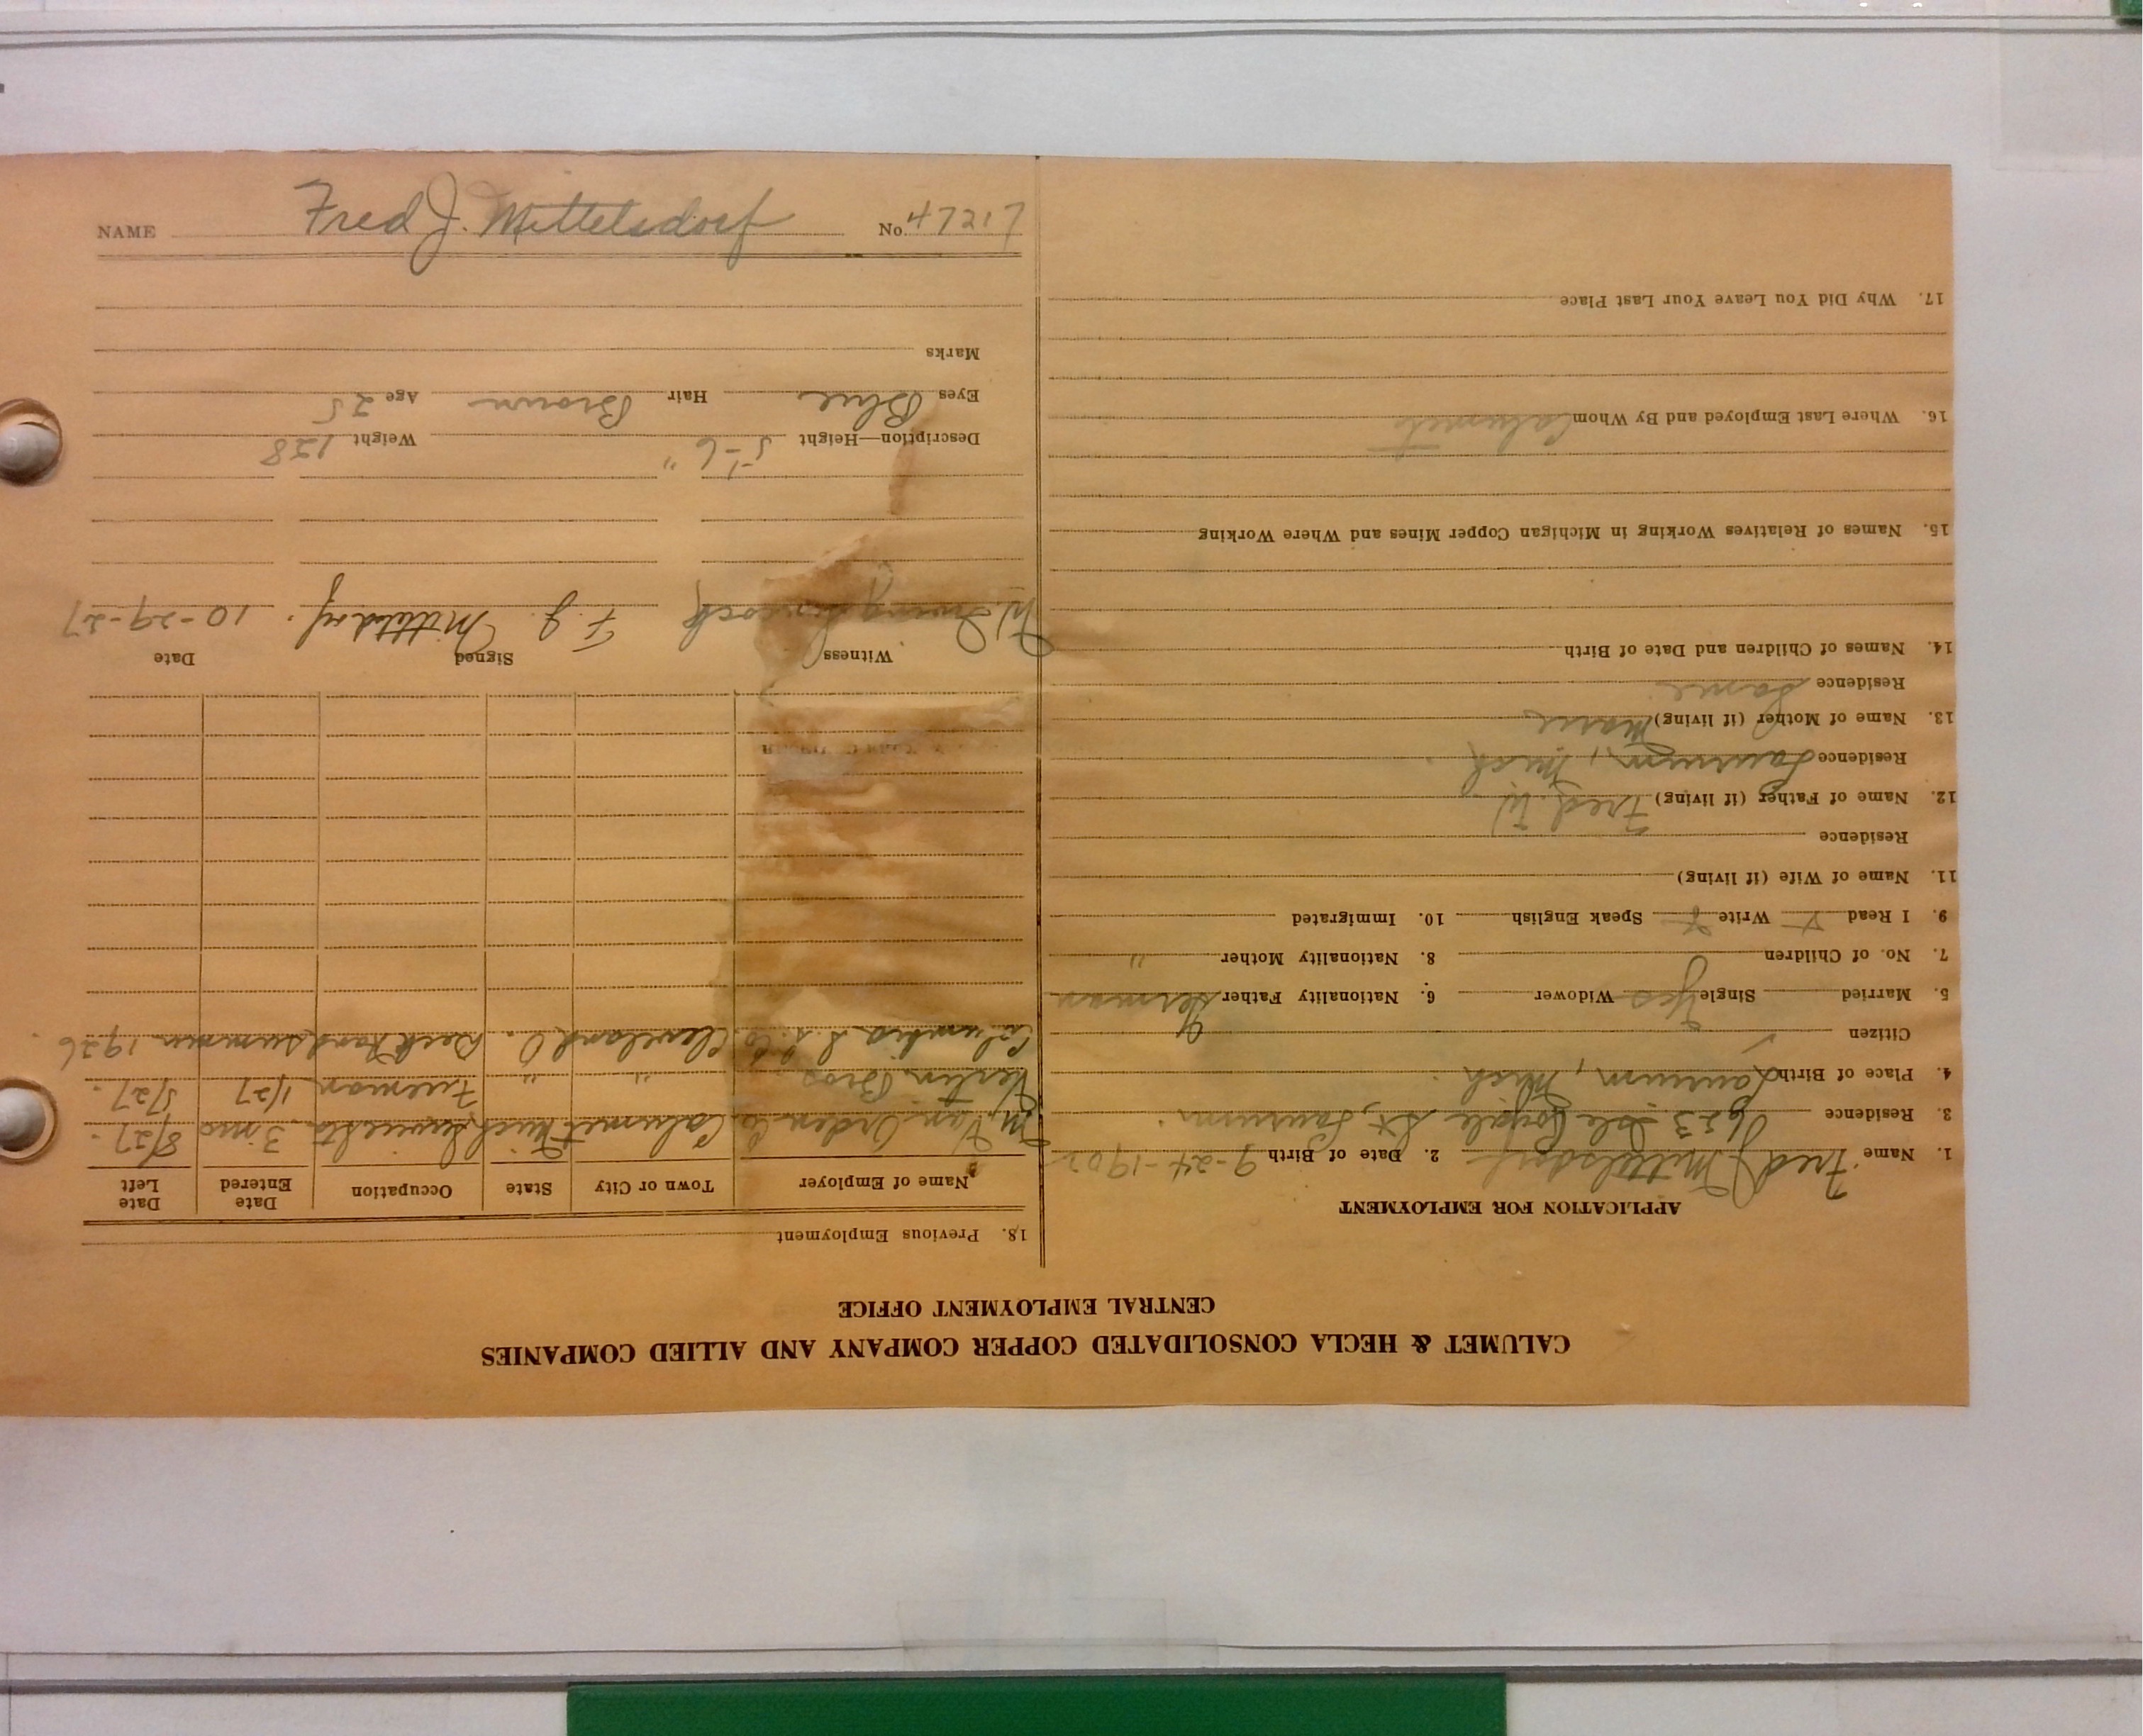 NAME Fred J. Mittelsdorf No. 47217
CALUMET & HECLA CONSOLIDATED COPPER COMPANY AND ALLIED COMPANIES
CENTRAL EMPLOYMENT OFFICE
APPLICATION FOR EMPLOYMENT
1. Name Fred J Mittelsdorf 2. Date of Birth 9-24-1902
3. Residence Isle Royale St, Laurium.
4. Place of Birth Laurium, Mich.
Citizen ✓
5. Married Single Yes Widower 6. Nationality Father German
7. No. of Children 8. Nationality Mother "
9. I Read Write Speak English 10. Immigrated
11. Name of Wife (if living)
Residence
12. Name of Father (if living) Fred. W
Residence Laurium, Mich.
13. Name of Mother (if living) Marie
Residence Same
14. Names of Children and Date of Birth
15. Names of Relatives Working in Michigan Copper Mines and Where Working
16. Where Last Employed and By Whom Calumet
17. Why Did You Leave Your Last Place
18. Previous Employment
Name of Employer Town or City State Occupation Date Entered Date Left
M. Van Orden Co Calumet Mich 3 mo 8/27.
Bros. " " Fireman 1/27 5/27.
Columbia S.S. Co Cleveland O. Deck hand summer 1926
Witness Signed Date
F. J. Mittelsdorf. 10-29-27
Description—Height 5'-6" Weight 128
Eyes Blue Hair Brown Age 25
Marks